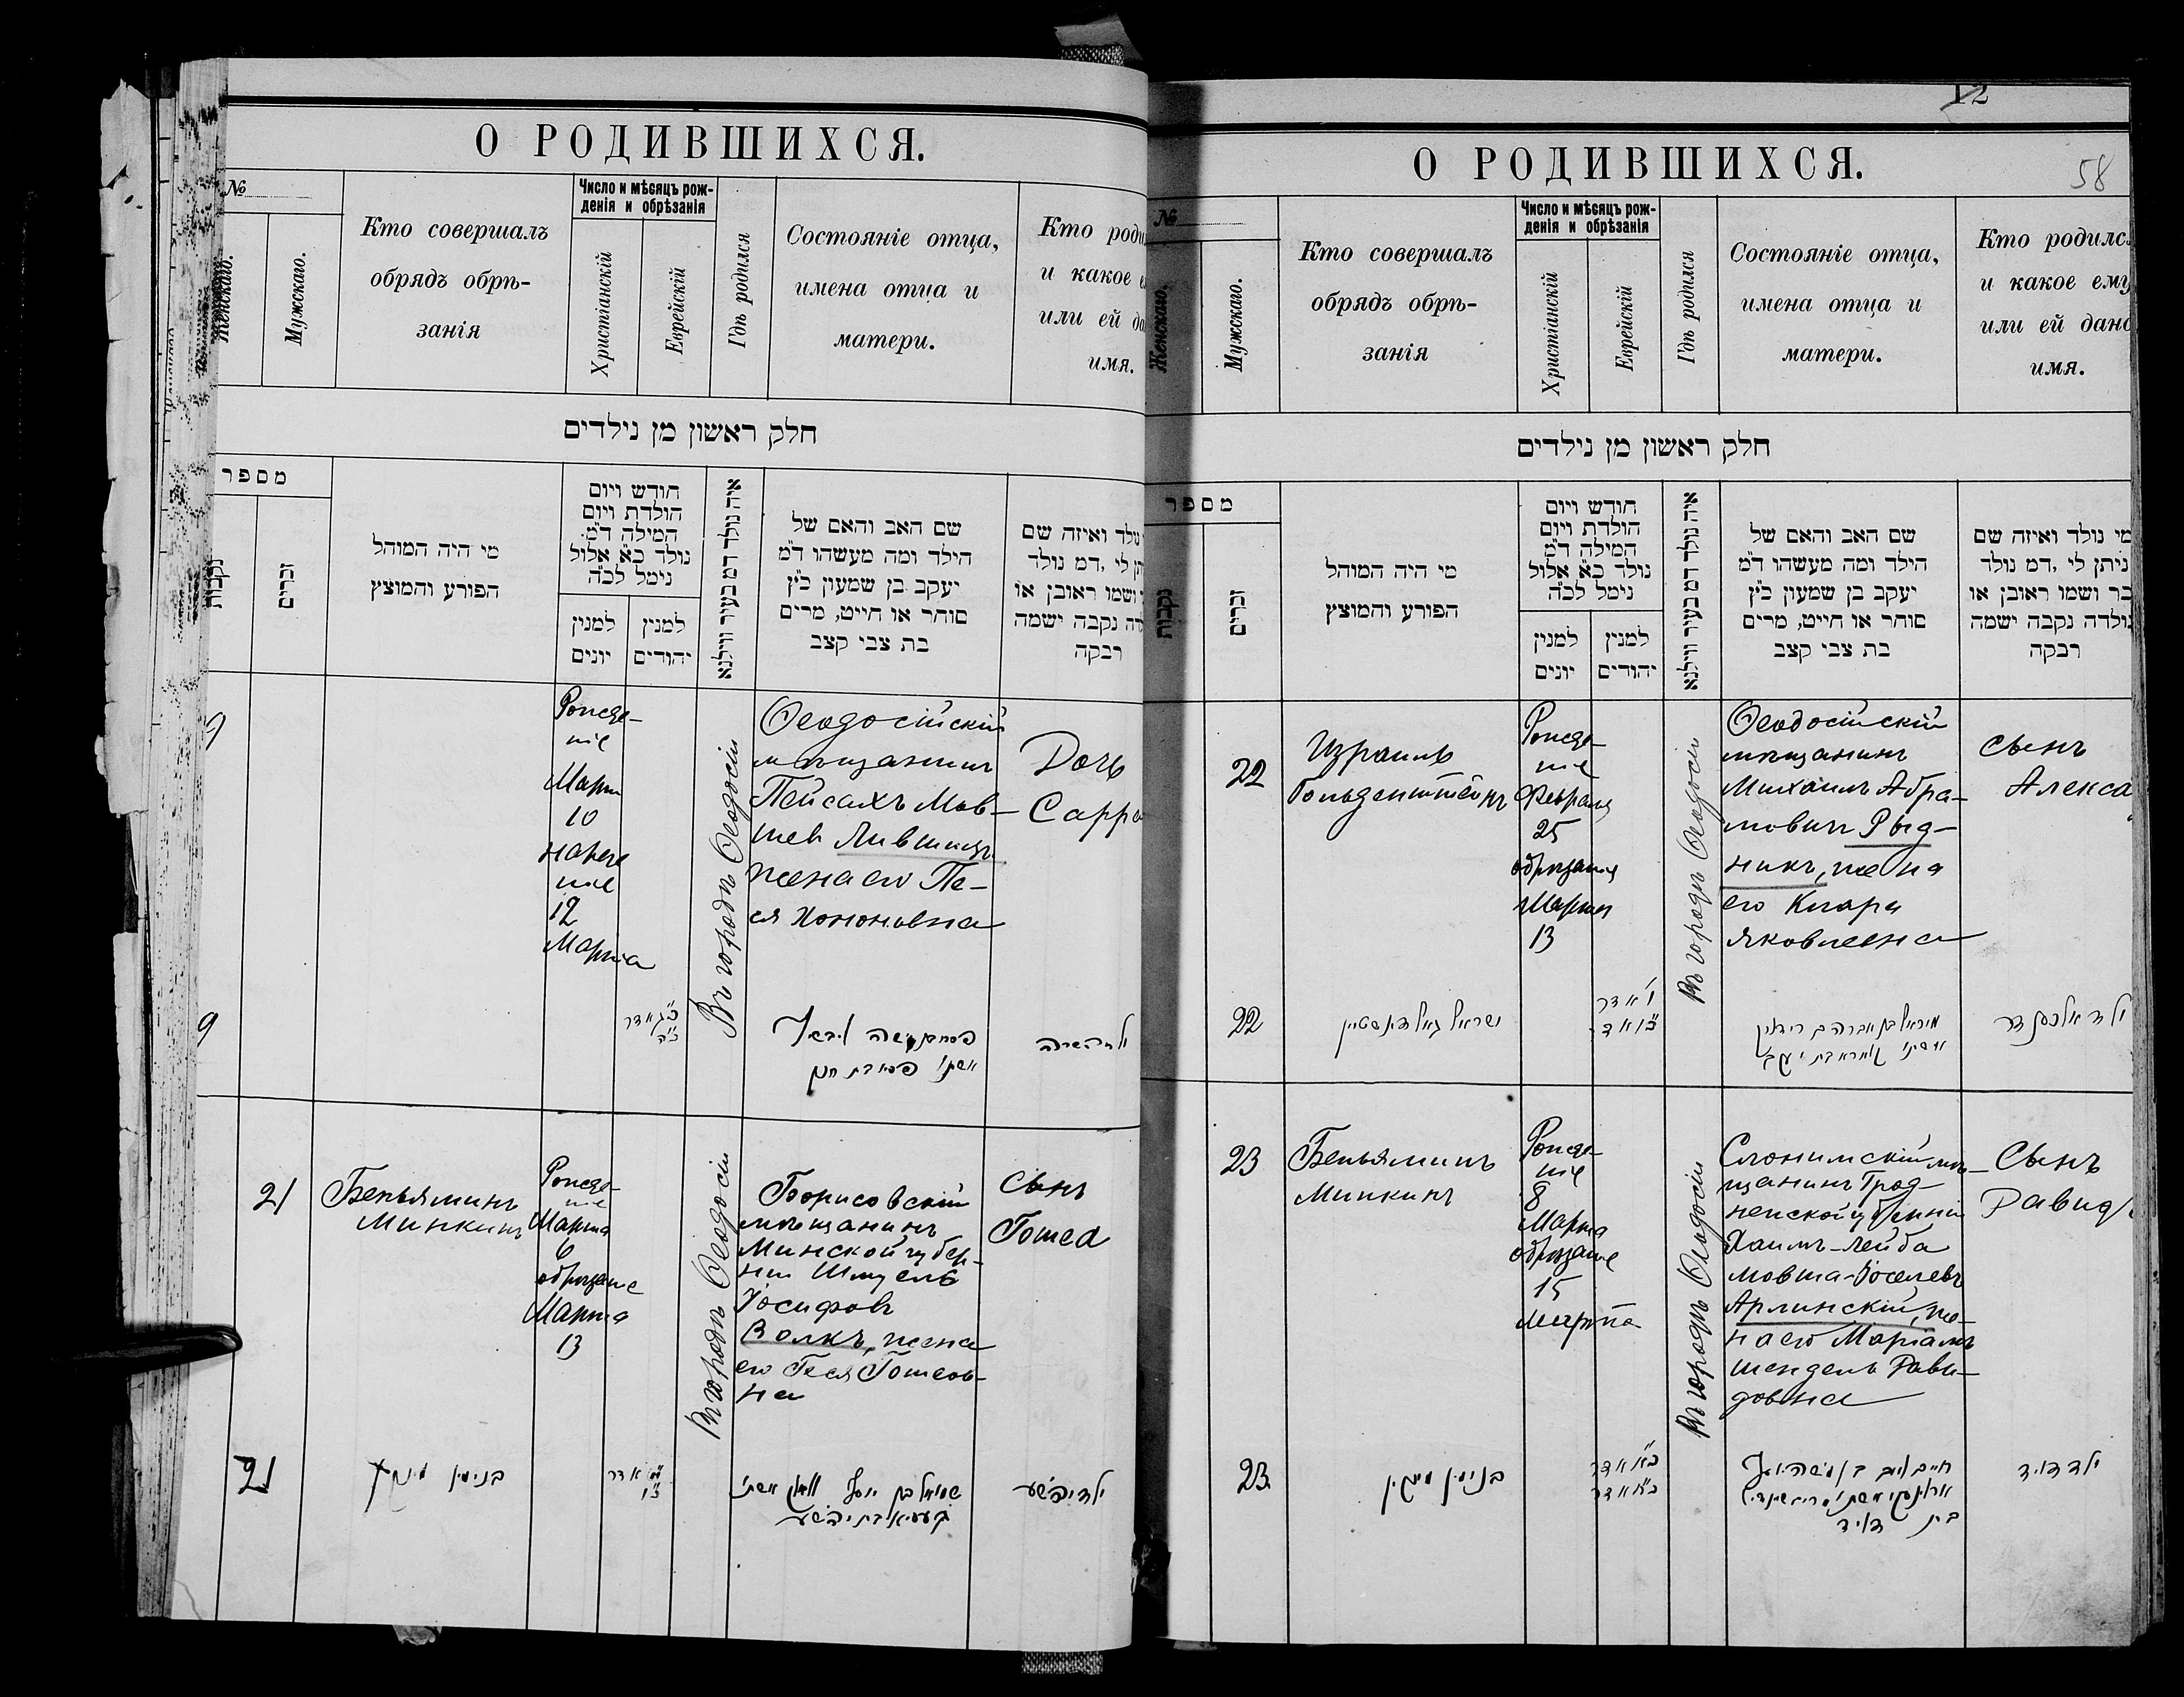 О РОДИВШИХСЯ.
№
Женскаго.
Мужскаго.
Кто совершалъ
обрядъ обрѣ-
занія
Число и мѣсяцъ рож-
денія и обрѣзанія
Христіанскій
Еврейскій
Гдѣ родился
Состояніе отца,
имена отца и
матери.
Кто роди
и какое е
или ей да
имя.
חלק ראשון מן נילדים
מספר
נקבות
זכרים
מי היה המוהל
הפורע והמוצץ
חודש ויום
הולדת ויום
המילה ד״מ
נולד כ״א אלול
נימל לכ״ה
למנין
יונים
למנין
יהודים
איה נולד דמ בעיר ווילנא
שם האב והאם של
הילד ומה מעשהו ד״מ
יעקב בן שמעון כ״ץ
סוחר או חייט, מרים
בת צבי קצב
נולד ואיזה שם
תן לי ,דמ נולד
ושמו ראובן או
דה נקבה ישמה
רבקה
9
Рожде-
ніе
Марта
10
нарече
ніе
12
Марта
Въ городѣ Ѳеодосіи
Ѳеодосійскій
мѣщанинъ
Пейсахъ Мов-
шев Лившицъ
жена его Пе-
ся Хононовна
Дочь
Сарра
9
כ״ג אדר
כ״ה
21
Беньяминъ
Минкинъ
Рожде-
ніе
Марта
6
обрѣзаніе
Марта
13
Въ городѣ Ѳеодосіи
Борисовскій
мѣщанинъ
Минской губер-
ніи Шмуель
Іосифов
Волкъ, жена
его Геся Гошеов-
на
Сынъ
Гошеа
21
בנימין מינקין
ילד יהושע
12
58
О РОДИВШИХСЯ.
№
Женскаго.
Мужскаго.
Кто совершалъ
обрядъ обрѣ-
занія
Число и мѣсяцъ рож-
денія и обрѣзанія
Христіанскій
Еврейскій
Гдѣ родился
Состояніе отца,
имена отца и
матери.
Кто родился
и какое ему
или ей дано
имя.
חלק ראשון מן נילדים
מספר
נקבות
זכרים
מי היה המוהל
הפורע והמוצץ
חודש ויום
הולדת ויום
המילה ד״מ
נולד כ״א אלול
נימל לכ״ה
למנין
יונים
למנין
יהודים
איה נולד דמ בעיר ווילנא
שם האב והאם של
הילד ומה מעשהו ד״מ
יעקב בן שמעון כ״ץ
סוחר או חייט, מרים
בת צבי קצב
מי נולד ואיזה שם
ניתן לי ,דמ נולד
בר ושמו ראובן או
נולדה נקבה ישמה
רבקה
22
Израиль
Гольденштейнъ
Рожде-
ніе
Февраля
25
обрѣзанія
Марта
13
Въ городѣ Ѳеодосіи
Ѳеодосійскій
мѣщанинъ
Михаилъ Абра-
мовичъ Рыд-
никъ, жена
его Клара
Яковлевна
сынъ
Алекса
22
ישראל גאלדענשטיין
ו׳ אדר
אשתו קלארא בת יעקב
ילד אלכסנדר
23
Беньяминъ
Минкинъ
Рожде-
ніе
8
Марта
обрѣзаніе
15
Марта
Въ городѣ Ѳеодосіи
Слонимскій мѣ-
щанинъ Грод-
ненской губерніи
Хаимъ-Лейба
Мовша-Іоселевъ
Арлинскій, же-
на его Маріамъ
Шендель Дави-
довна
Сынъ
Давидъ
23
בנימין מינקין
כ״א אדר
כ״ח אדר
בת דוד
ילד דוד